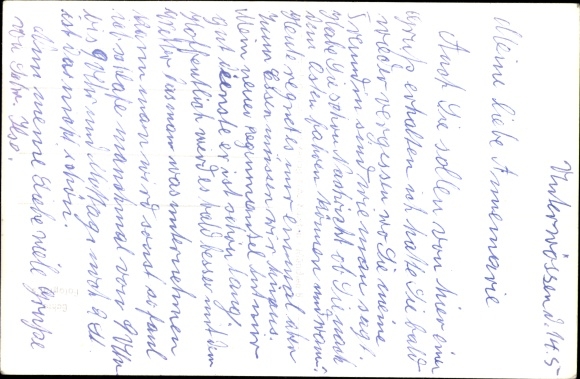 Unterwössen d. 14.5
Meine liebe Annemarie
Auch Sie sollen von hier ein
Gruß erhalten ich hatte Sie bald
vergessen wo Sie meine
Freundin sind wie man sagt.
habe Sie schon Nachricht ob Sie nach
dem Essen fahren können
Heute regnet es nur einmal aber
zum Essen müssen wir hinaus.
Mein neuer Regenmantel tut mir
gut Dienste er ist schön lang.
Hoffentlich wird es bald besser mit dem
Wetter das man was unternehmen
kann man wird sonst so faul
ich schlafe manchmal von
bis und Mittags noch 2 St.
ist das nicht schön.
Nun meine Liebe viele Grüße
von Ihrer